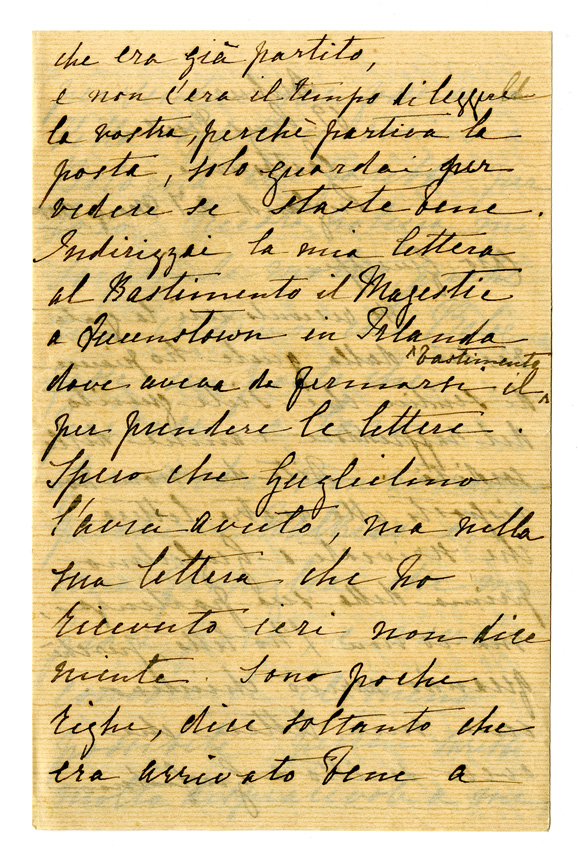 che era già partito,
e non c'era il tempo di leggere
la vostra, perchè partiva la
posta, solo guardai per
vedere se staste bene.
Indirizzai la mia lettera
al Bastimento il Magestic
a Queenstown in Irlanda
dove aveva da fermarsi il ^bastimento^
per prendere le lettere.
Spero che Guglielmo
l'avrà avuto, ma nella
sua lettera che ho
ricevuto ieri non dice
niente. Sono poche
righe, dice soltanto che
era arrivato bene a